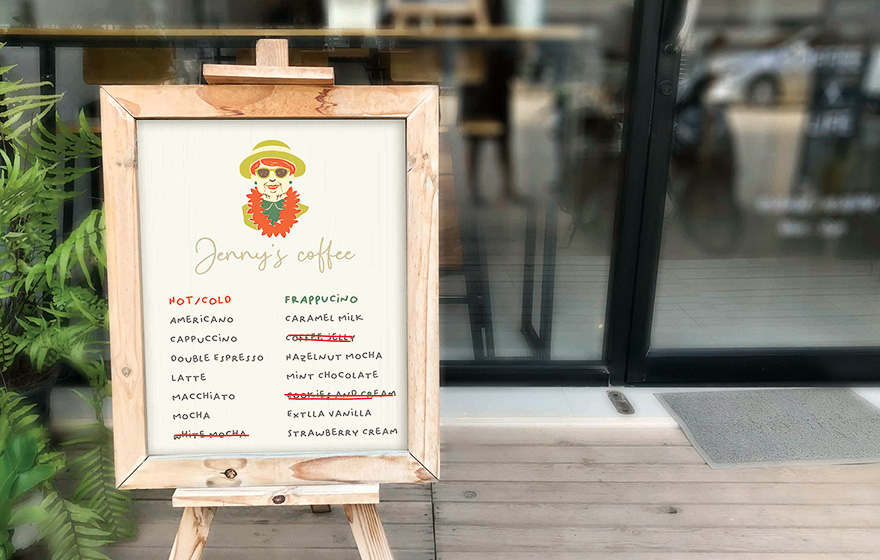 Jenny's coffee
HOT/COLD
AMERICANO
CAPPUCCINO
DOUBLE ESPRESSO
LATTE
MACCHIATO
MOCHA
WHITE MOCHA
FRAPPUCINO
CARAMEL MILK
COFFEE JELLY
HAZELNUT MOCHA
MINT CHOCOLATE
COOKIES AND CREAM
EXTLLA VANILLA
STRAWBERRY CREAM
COFFEE
LIFE